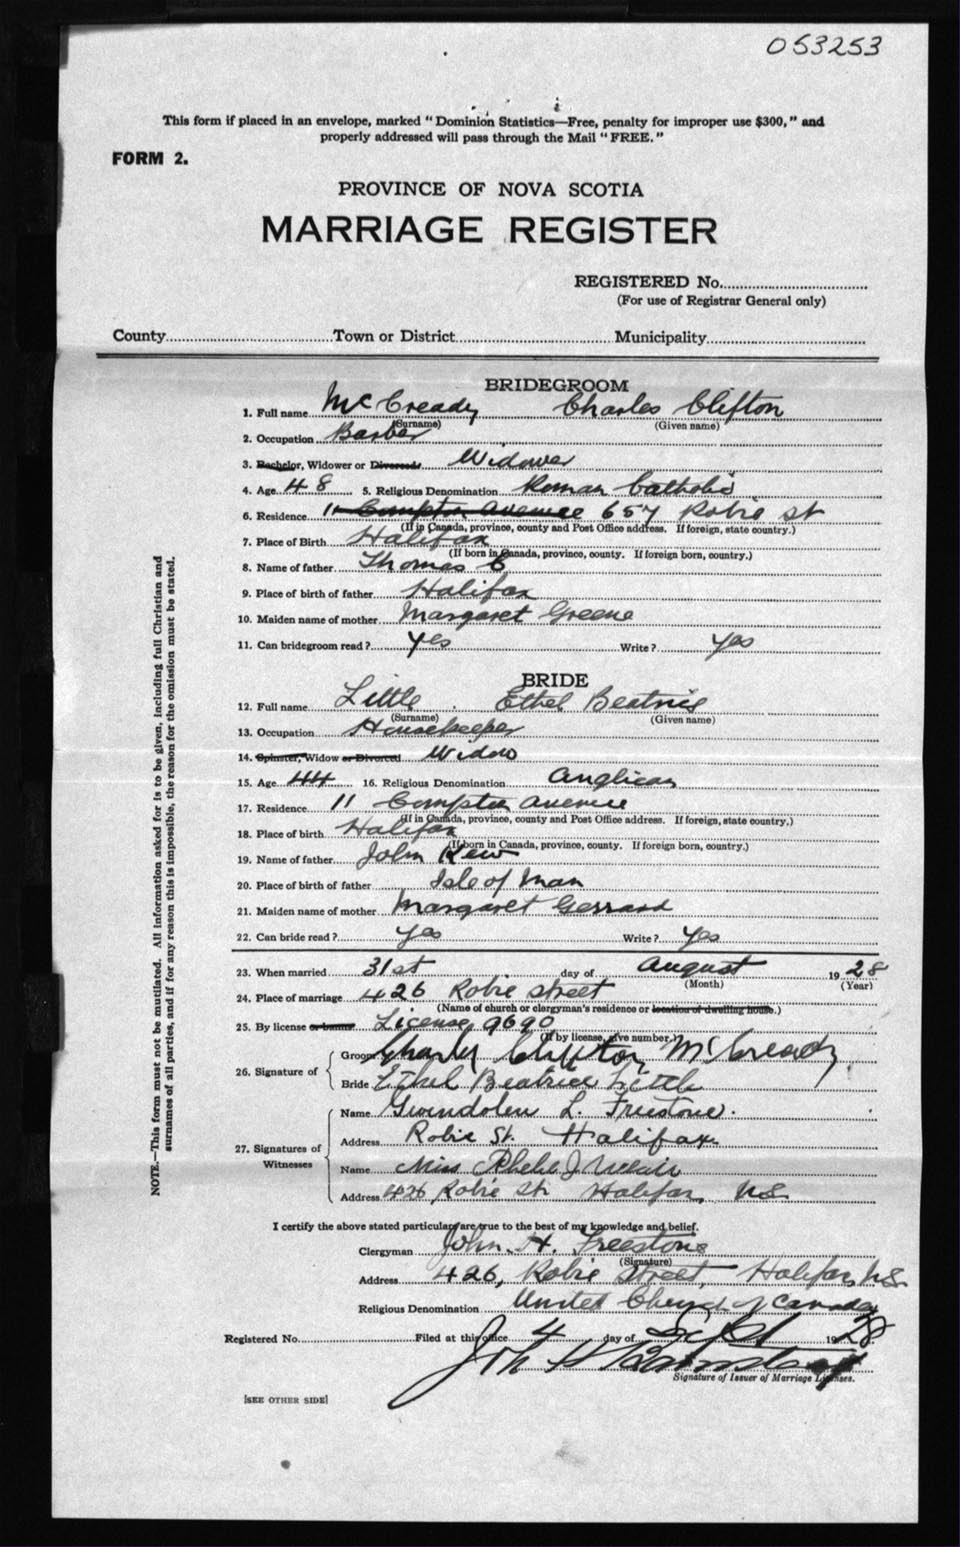 053253
This form if placed in an envelope, marked "Dominion Statistics—Free, penalty for improper use $300," and
properly addressed will pass through the Mail "FREE."
FORM 2.
PROVINCE OF NOVA SCOTIA
MARRIAGE REGISTER
REGISTERED No.
(For use of Registrar General only)
County Town or District Municipality
BRIDEGROOM
1. Full name McCready Charles Clifton
(Surname) (Given name)
2. Occupation Barber
3. Bachelor, Widower or Divorcede Widower
4. Age 48 5. Religious Denomination Roman Catholic
6. Residence 11 Compton Avenue 657 Robie St
(If in Canada, province, county and Post Office address. If foreign, state country.)
7. Place of Birth Halifax
(If born in Canada, province, county. If foreign born, country.)
8. Name of father Thomas C
9. Place of birth of father Halifax
10. Maiden name of mother Margaret Greene
11. Can bridegroom read? Yes Write? Yes
BRIDE
12. Full name Little Ethel Beatrice
(Surname) (Given name)
13. Occupation Housekeeper
14. Spinster, Widow or Divorced Widow
15. Age 44 16. Religious Denomination Anglican
17. Residence 11 Compton Avenue
(If in Canada, province, county and Post Office address. If foreign, state country.)
18. Place of birth Halifax
(If born in Canada, province, county. If foreign born, country.)
19. Name of father John Kew
20. Place of birth of father Isle of Man
21. Maiden name of mother Margaret Gerrard
22. Can bride read? Yes Write? Yes
23. When married 31st day of August 1928
(Month) (Year)
24. Place of marriage 426 Robie Street
(Name of church or clergyman's residence or location of dwelling house.)
25. By license or banns License 9690
(If by license, give number.)
Groom Charles Clifton McCready
26. Signature of
Bride Ethel Beatrice Little
Name Gwendolen L. Freestone.
27. Signatures of Witnesses
Address Robie St. Halifax
Name Miss Phebe J
Address 426 Robie St. Halifax, N.S.
I certify the above stated particulars are true to the best of my knowledge and belief.
Clergyman John H. Freestone
(Signature)
Address 426, Robie Street, Halifax N.S.
Religious Denomination United Church of Canada
Registered No. Filed at this office 4 day of Sept 1928
Signature of Issuer of Marriage Licenses.
[SEE OTHER SIDE]
NOTE.—This form must not be mutilated. All information asked for is to be given, including full Christian and
surnames of all parties, and if for any reason this is impossible, the reason for the omission must be stated.